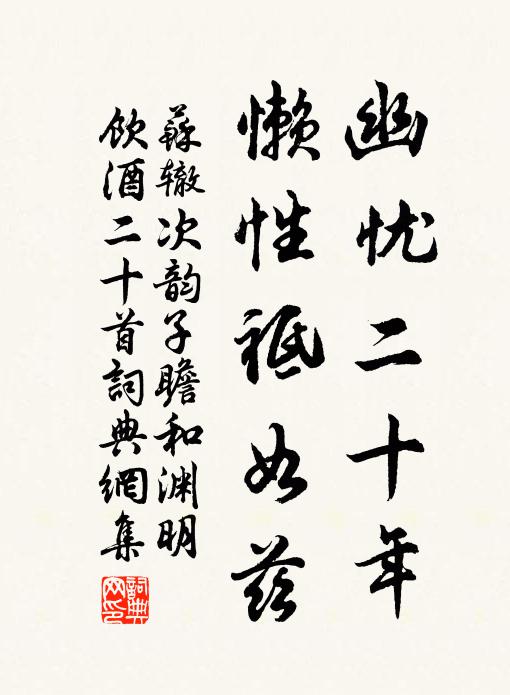 幽忧二十年
懒性祗如兹
蘇辙次韵子瞻和渊明
飲酒二十首詞典網集
詞典
网印